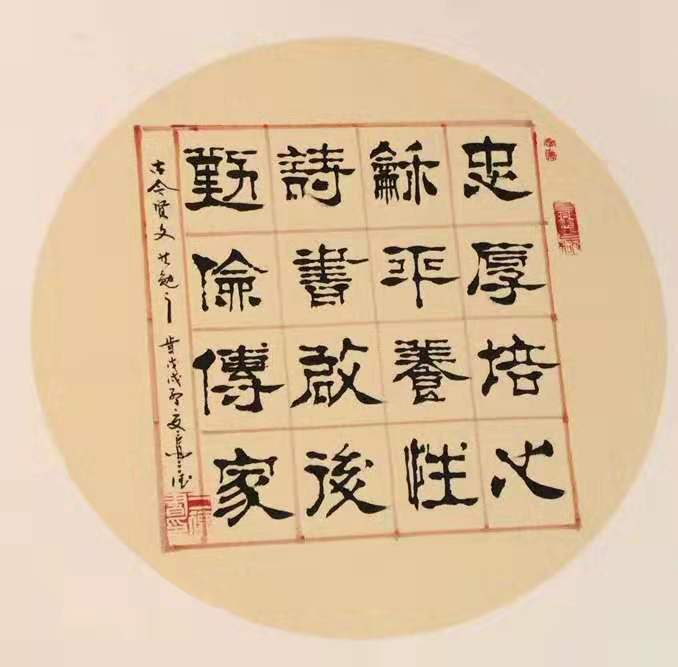 忠厚培心
龢平養性
詩書啟後
勤儉傳家
古今贤文共勉之
戊戌孟夏